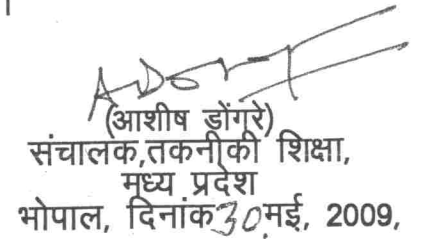 (आशीष डोंगरे)
संचालक,तकनीकी शिक्षा,
मध्य प्रदेश
भोपाल, दिनांक 30 मई, 2009,